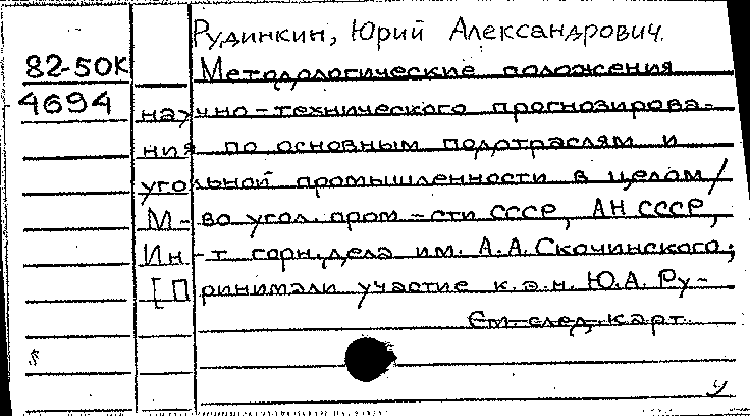 Рудинкин, Юрий Александрович.
82-50К Методологические положения
4694 научно-технического прогнозирова-
ния по основным подотраслям и
угольной промышленности в целом/
М-во угол. пром-сти СССР, АН СССР,
Ин-т горн. дела им. А.А. Скочинского;
[Принимали участие к.э.н. Ю.А. Ру-
См. след. карт.